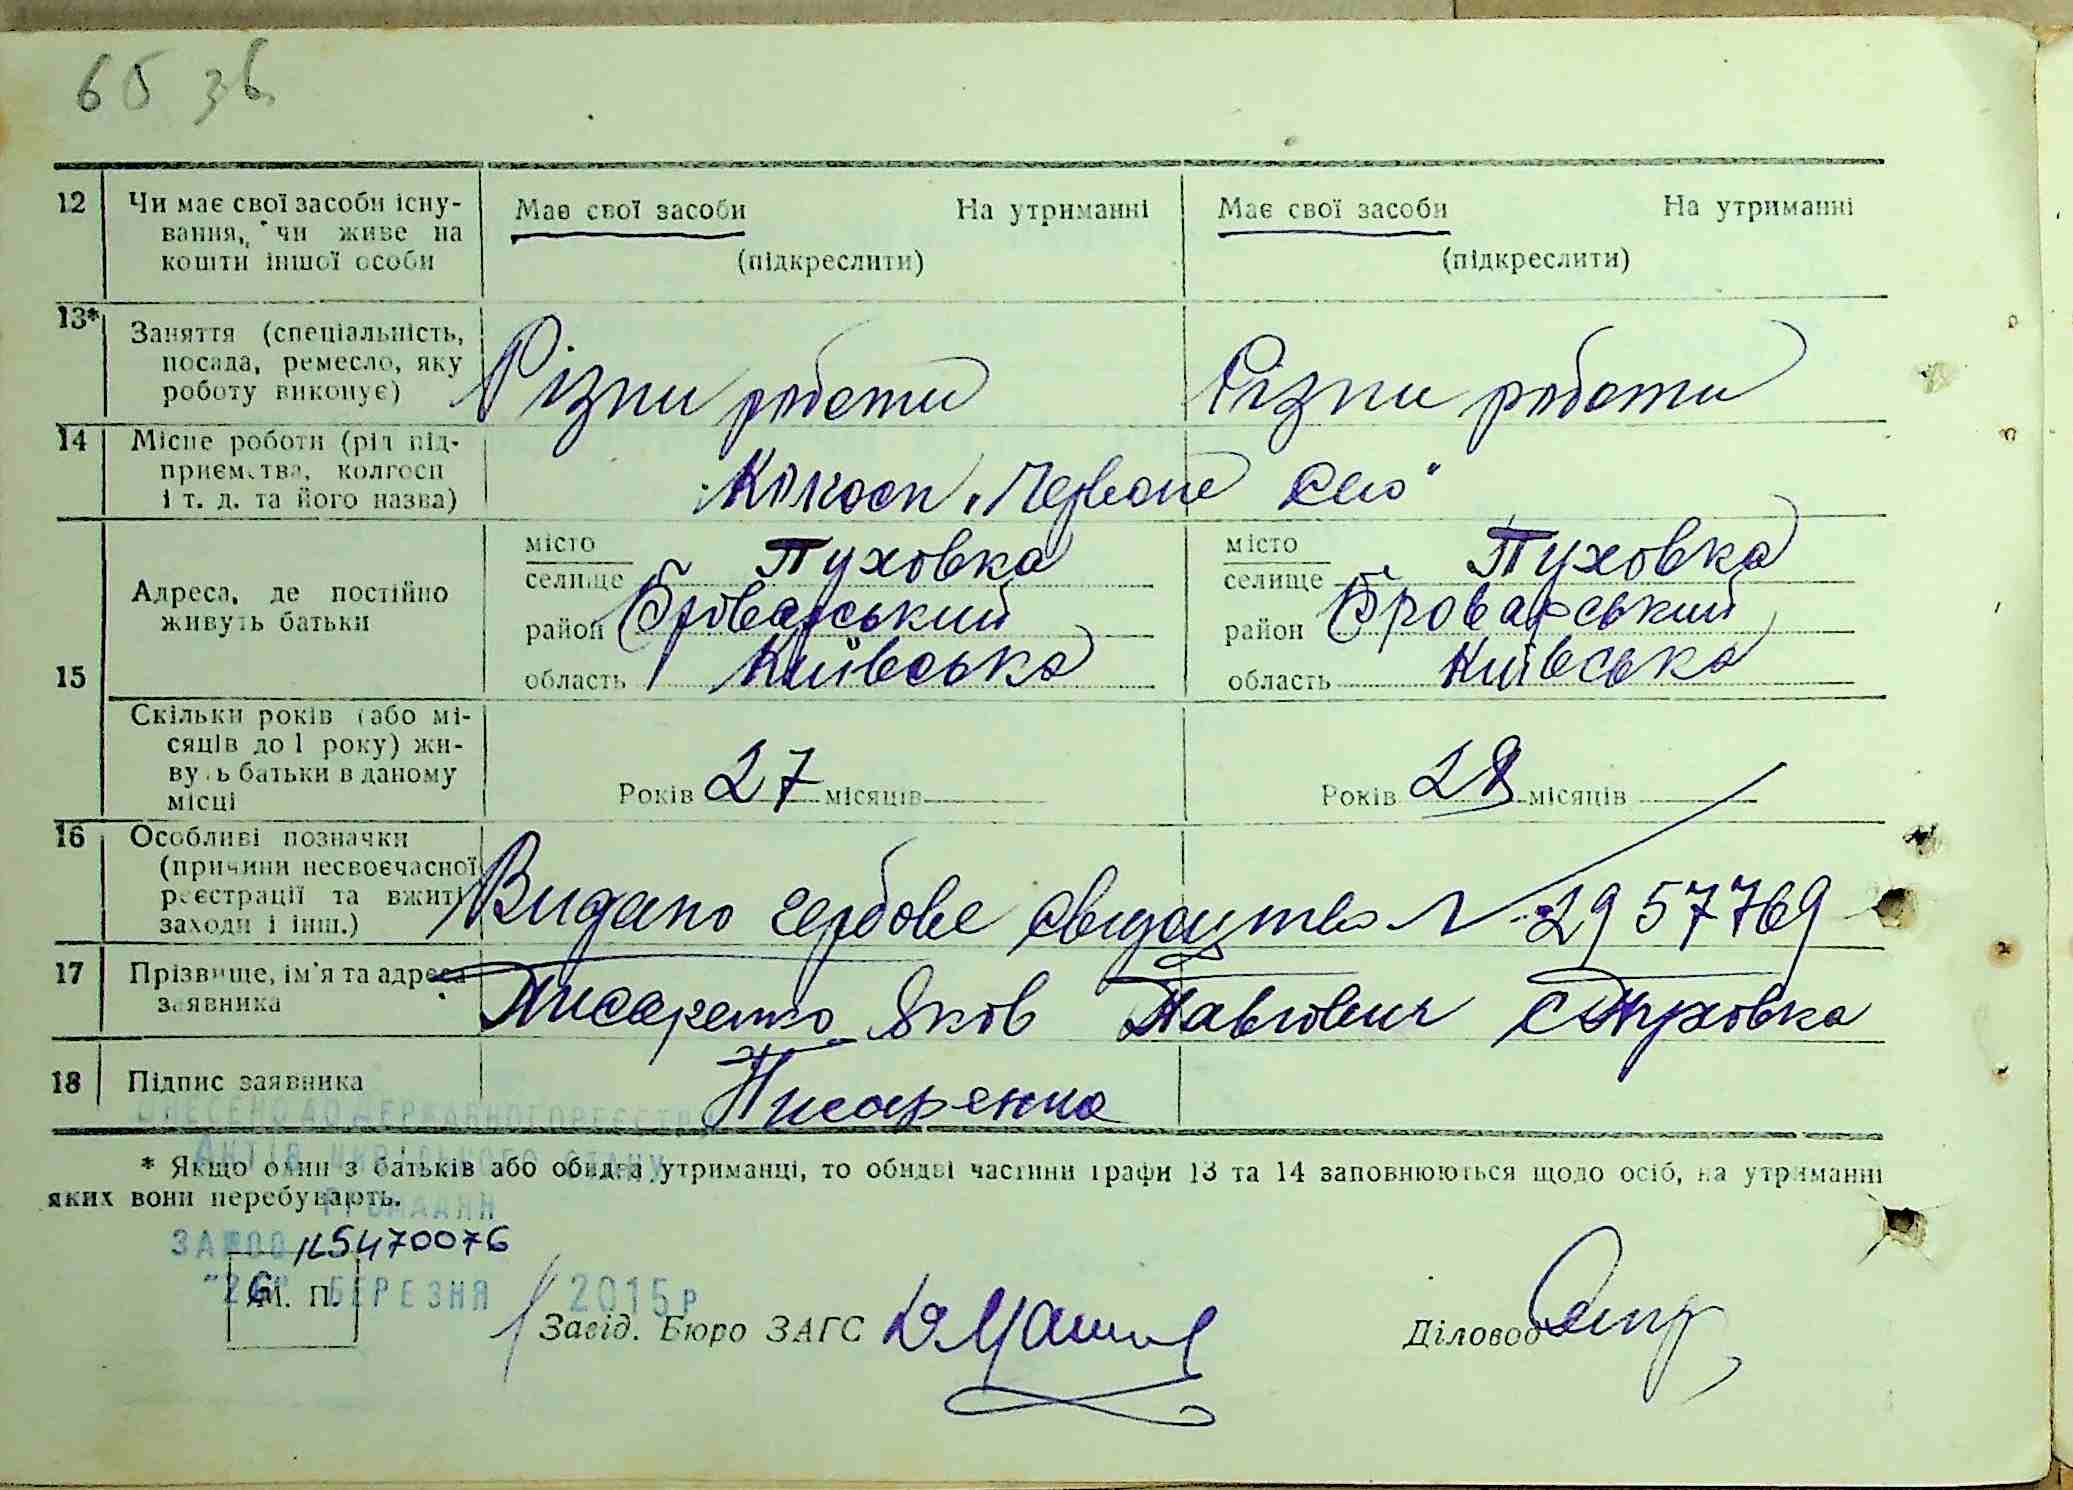 65 зв.
12 Чи має свої засоби існування, чи живе на кошти іншої особи
Має свої засоби На утриманні Має свої засоби На утриманні
(підкреслити) (підкреслити)
13* Заняття (спеціальність, посада, ремесло, яку роботу виконує)
Різни роботи Різни роботи
14 Місце роботи (рід підприємства, колгосп і т. д. та його назва)
Колхосп „Червоне Село"
15 Адреса, де постійно живуть батьки
місто селище Пуховка місто селище Пуховка
район Броварський район Броварський
область Київська область Київська
Скільки років (або місяців до 1 року) живуть батьки в даному місці
Років 27 місяців Років 28 місяців
16 Особливі позначки (причини несвоєчасної реєстрації та вжиті заходи і інш.)
Видано гербове свидоцтво № 2957769
17 Прізвище, ім'я та адреса заявника
Писаренко Яков Павлович с Пуховка
18 Підпис заявника
Писаренко
ВНЕСЕНО ДО ДЕРЖАВНОГО РЕЄСТРУ
АКТІВ ЦИВІЛЬНОГО СТАНУ
ГРОМАДЯН
* Якщо один з батьків або обидва утриманці, то обидві частини графи 13 та 14 заповнюються щодо осіб, на утриманні
яких вони перебувають.
ЗА №00 115470076
"26" БЕРЕЗНЯ 2015 р
М. П.
Завід. Бюро ЗАГС
Діловод